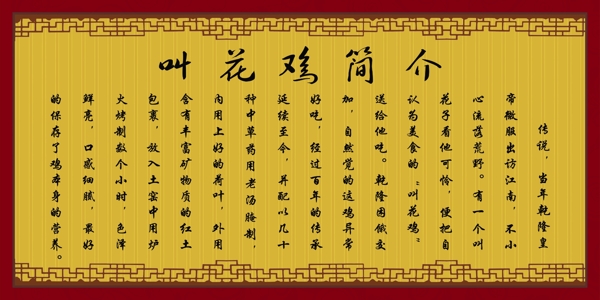 叫花鸡简介
传说，当年乾隆皇
帝微服出访江南，不小
心流落荒野。有一个叫
花子看他可怜，便把自
认为美食的“叫花鸡”
送给他吃。乾隆困饿交
加，自然觉的这鸡异常
好吃，经过百年的传承
延续至今，并配以几十
种中草药用老汤腌制，
内用上好的荷叶，外用
含有丰富矿物质的红土
包裹，放入土窑中用炉
火烤制数个小时，色泽
鲜亮，口感细腻，最好
的保存了鸡本身的营养。